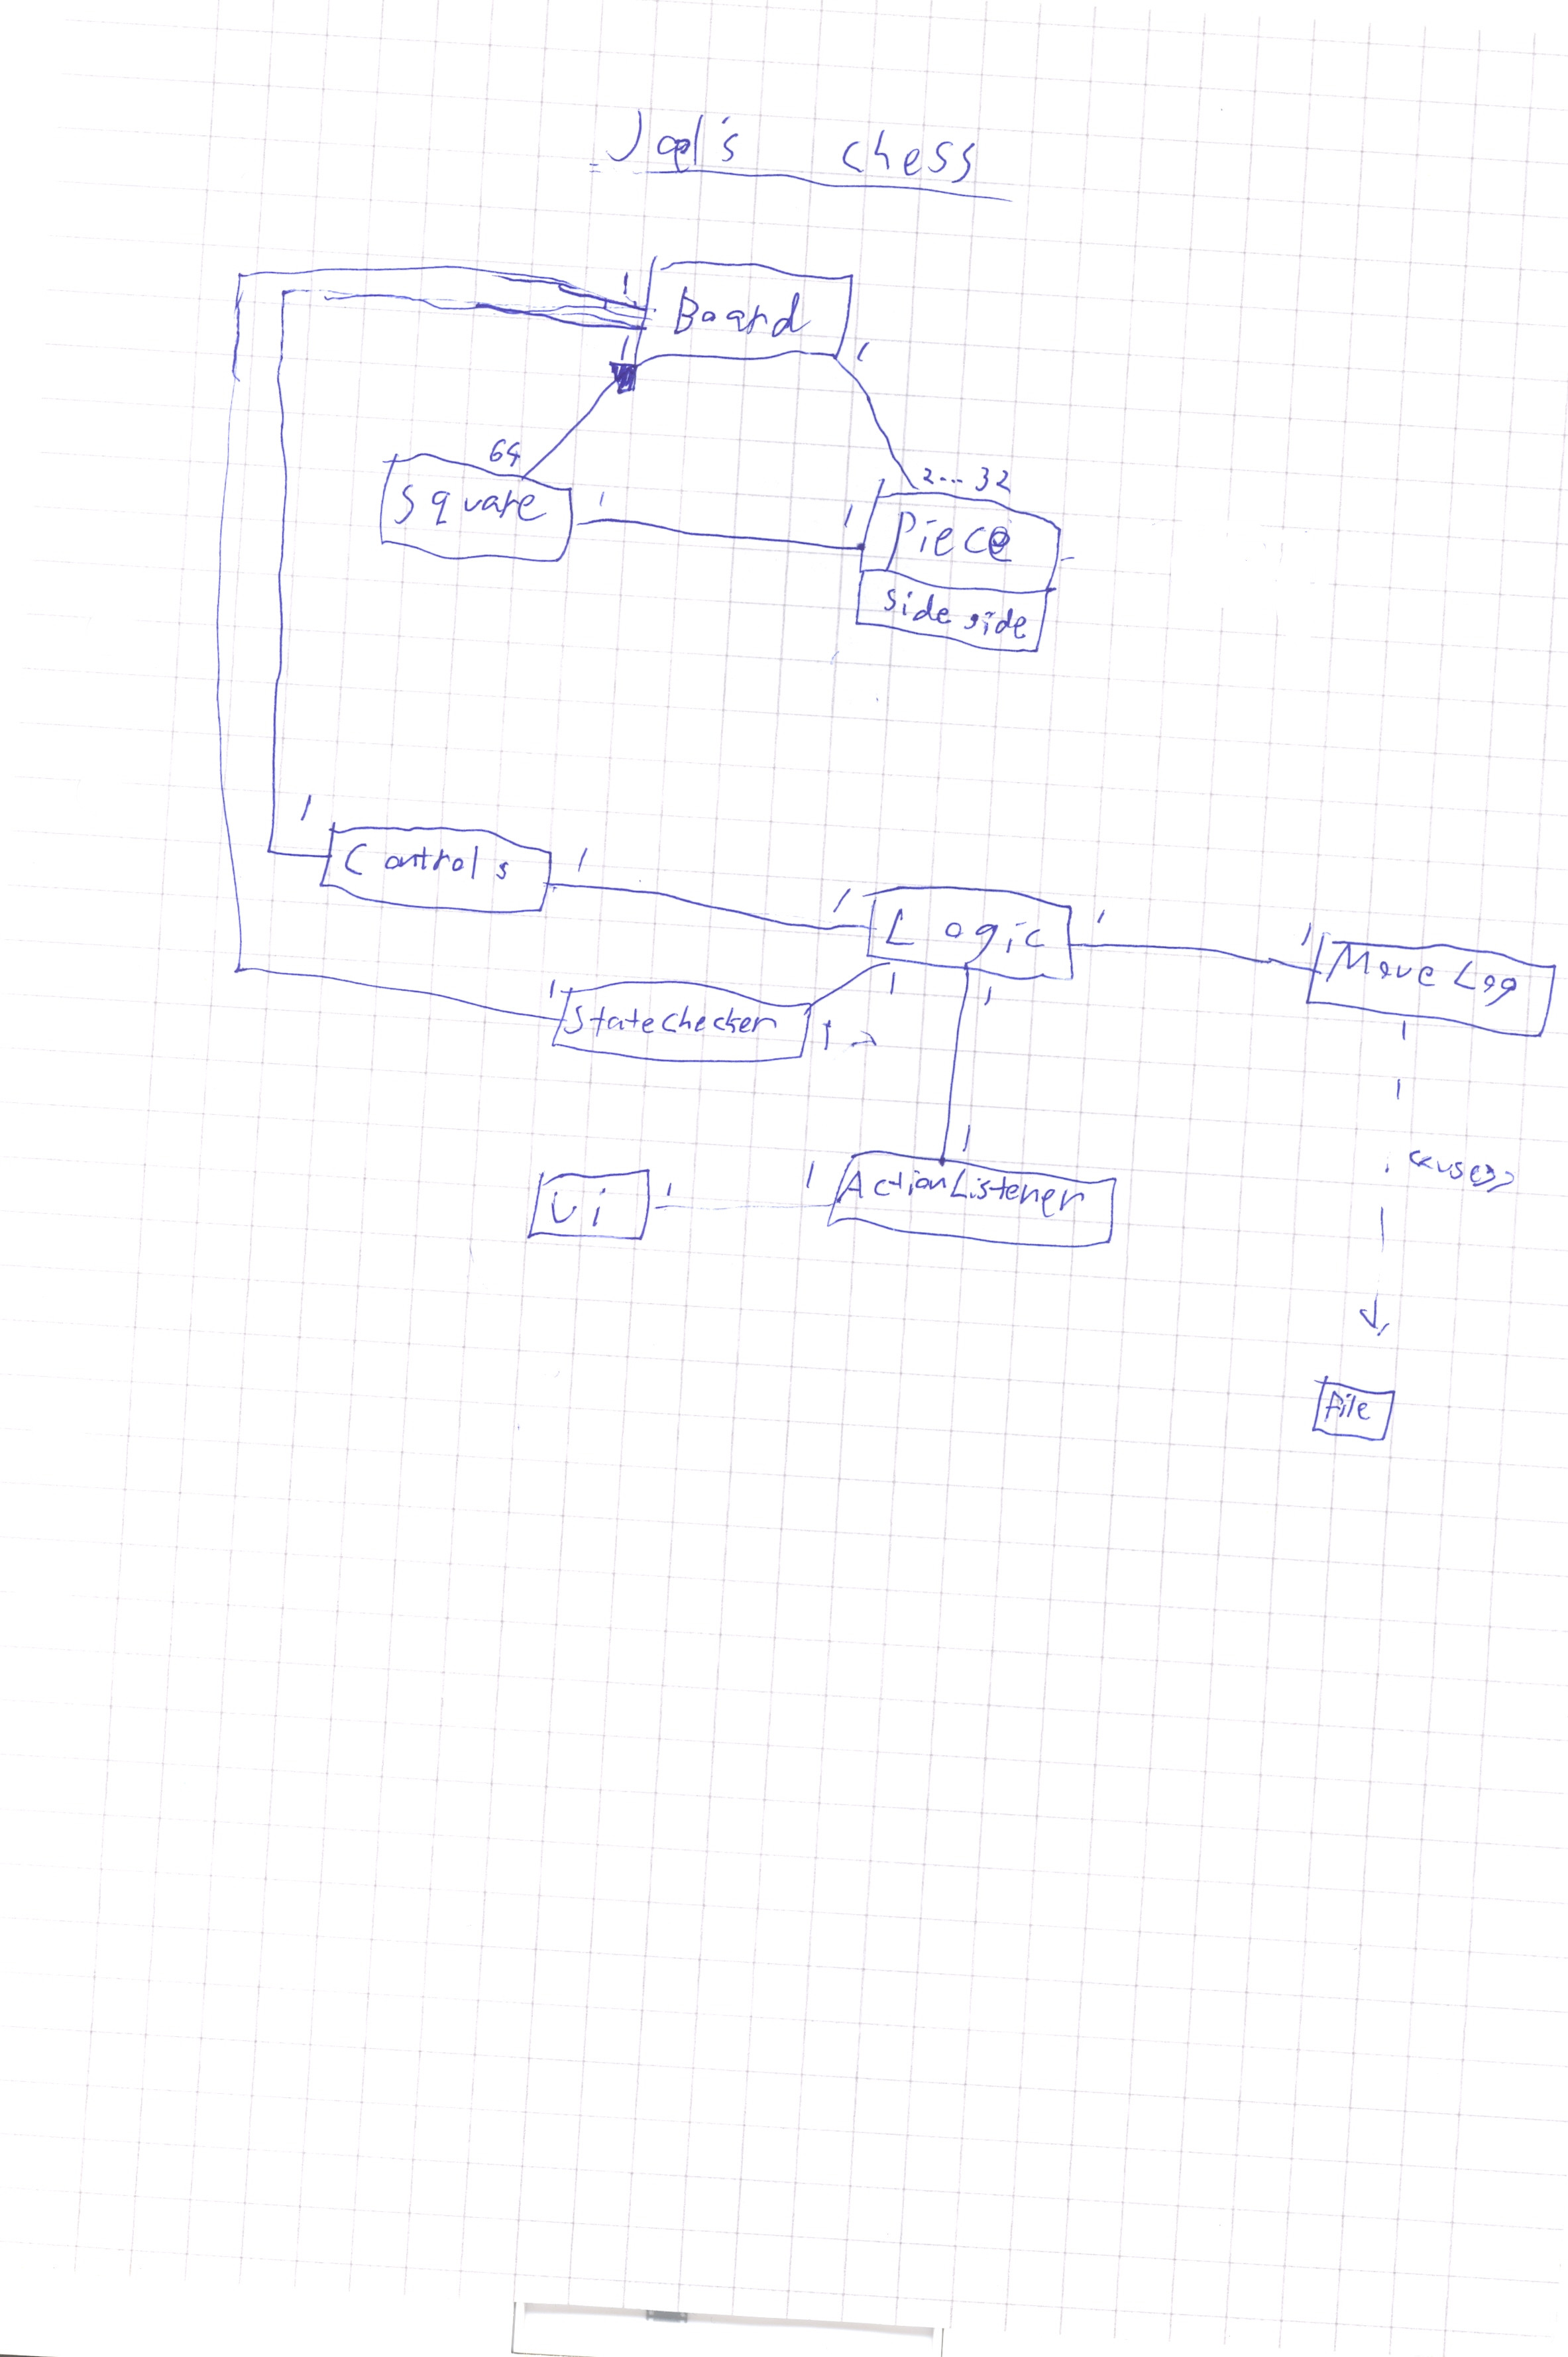 Joel's chess
1
Board
1
1
64
Square
1
1
2...32
Piece
side side
1
Controls
1
1
Logic
1
1
MoveLog
1
StateChecker
1
1
1
1
<<uses>>
Ui
1
1
ActionListener
File